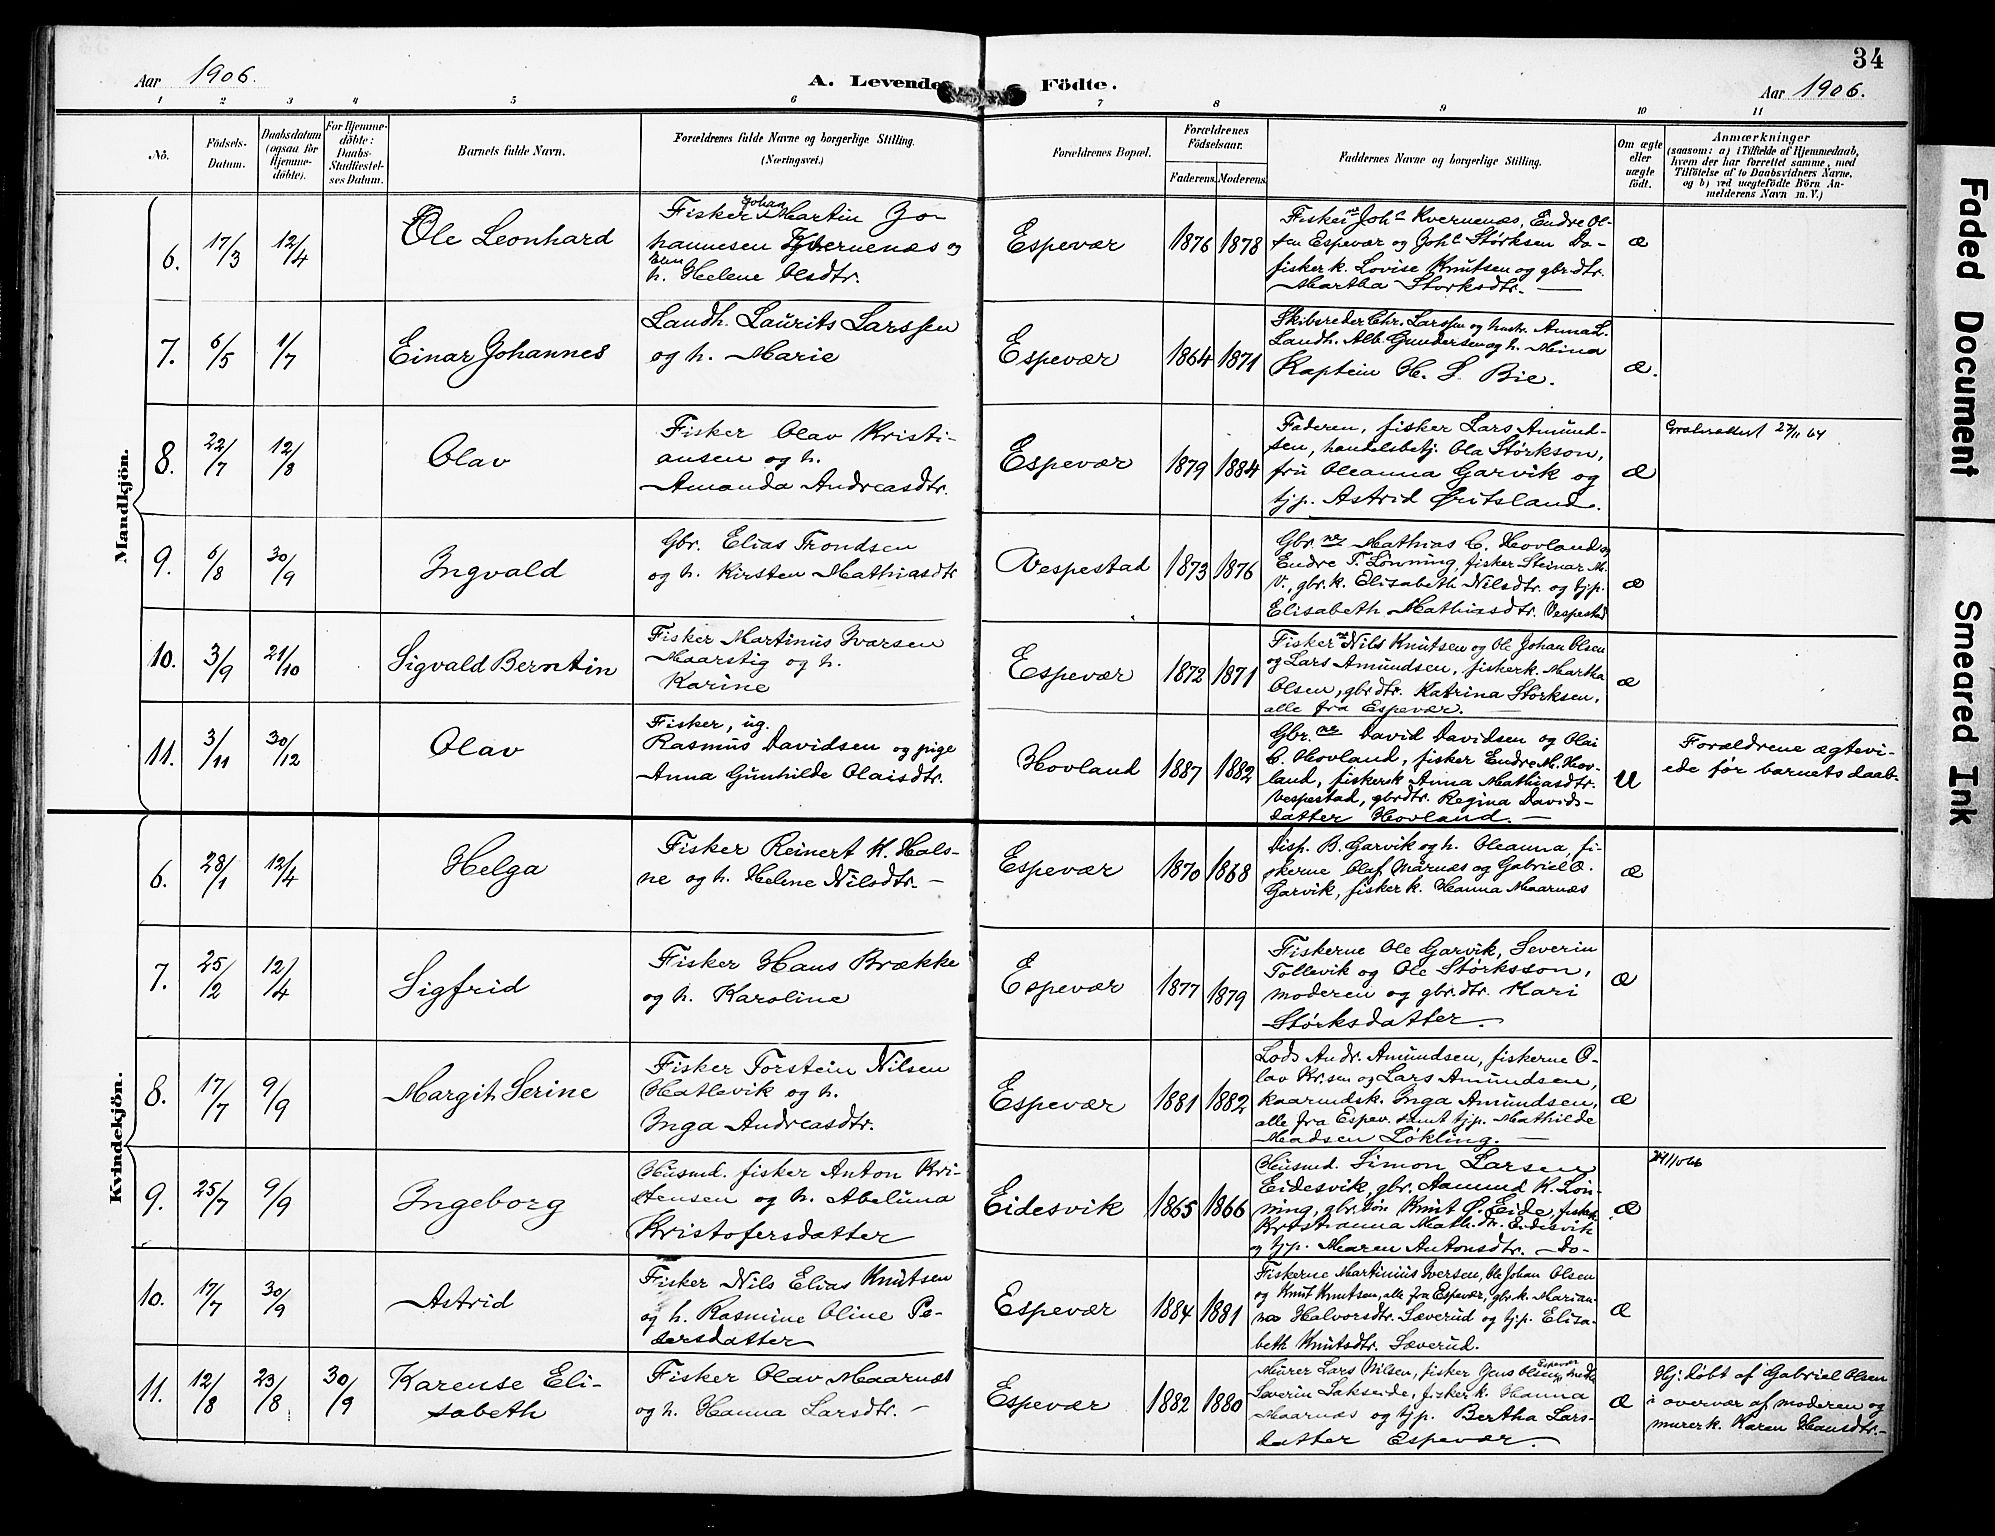 34
Aar 1906.
A. Levende Födte.
Aar 1906.
1 2 3 4 5 6 7 8 9 10 11
No.
Födsels-Datum.
Daabsdatum (ogsaa for Hjemme-döbte).
For Hjemme-döbte: Daabs-Stadfæstel-ses Datum.
Barnets fulde Navn.
Forældrenes fulde Navne og borgerlige Stilling. (Næringsvei.)
Forældrenes Bopæl.
Forældrenes Födselsaar.
Faderens. Moderens.
Faddernes Navne og borgerlige Stilling.
Om ægte eller uægte födt.
Anmærkninger
(saasom: a) i Tilfælde af Hjemmedaab,
hvem der har forrettet samme, med
Tilföielse af to Daabsvidners Navne,
og b) ved uægtefödte Börn An-
melderens Navn m. V.)
Mandkjön.
6. 17/3 12/4
Ole Leonhard
Fisker Johan Martin Jo-
hannesen Kvernenæs og
h. Helene Olsdtr.
Espevær
1876 1878
Fiskerne Joh. Kvernenæs, Endre Ol-
sen Espevær og Joh. Størksen Do-
fisker k. Lovise Knutsen og gbr.dtr.
Martha Størksdtr. —
æ
7. 6/5 1/7
Einar Johannes
Landh. Laurits Larssen
og h. Marie
Espevær
1864 1871
Skibsreder Chr. Larssen og hustr. Anna L.
Landh. Alb. Gundersen og h. Mina
Kaptein H. S. Bie.
æ.
8. 22/7 12/8
Olav
Fisker Olav Kristi-
ansen og h.
Amanda Andreasdtr.
Espevær
1879 1884
Faderen, fisker Lars Amund-
sen, handelsbetj. Ola Størkson,
fru Oleanna Garvik og
tjp. Astrid Øritsland.
æ
27/11 64
9. 6/8 30/9
Ingvald
Gbr. Elias Trondsen
og h. Kirsten Mathiasdtr
Vespestad
1873 1876
Gbr.ne Mathias C. Hovland og
Endre T. Lønning, fisker Steinar M.
V., gbr.k. Elisabeth Nilsdtr. og tjp.
Elisabeth Mathiasdtr. Vespestad
æ
10. 3/9 21/10
Sigvald Berntin
Fisker Martinus Ivarsen
Maarstig og h.
Karine
Espevær
1872 1871
Fiskerne Nils Knutsen og Ole Johan Olsen
og Lars Amundsen, fiskerk. Martha
Olsen, gbrdtr. Katrina Størksen,
alle fra Espevær.
æ
11. 3/11 30/12
Olav
Fisker, ug.
Rasmus Davidsen og pige
Anna Gunhilde Olaisdtr.
Hovland
1887 1882
Gbr.ne David Davidsen og Olai
C. Hovland, fisker Endre M. Hov-
land, fiskersk Anna Mathiasdtr.
Vespestad, gbrdtr. Regina Davids-
datter Hovland. —
U
Forældrene ægtevi-
ede før barnets daab.
Kvindekjön.
6. 28/1 12/4
Helga
Fisker Reinert K. Hals-
ne og h. Helene Nilsdtr. —
Espevær
1870 1868
Disp. B. Garvik og h. Oleanna, fi-
skerne Olaf Marnæs og Gabriel O.
Garvik, fisker k. Hanna Maarnæs
æ
7. 25/2 12/4
Sigfrid
Fisker Hans Brække
og h. Karoline
Espevær
1877 1879
Fiskerne Ole Garvik, Severin
Tollevik og Ole Størksson,
moderen og gbr.dtr. Kari
Størksdatter.
æ
8. 17/7 9/9
Margit Serine
Fisker Torstein Nilsen
Hatlevik og h.
Inga Andreasdtr.
Espevær
1881 1882
Lods Andr. Amundsen, fiskerne O-
lav Kr.sen og Lars Amundsen,
kaarmdsk. Inga Amundsen,
alle fra Espev. samt tjp. Mathilde
Madsen Løkling. —
æ
9. 25/7 9/9
Ingeborg
Husmd. fisker Anton Kri-
stensen og h. Abeluna
Kristofersdatter
Eidesvik
1865 1866
Husmd. Simon Larsen
Eidesvik, gbr. Aamund K. Løn-
ning, gbr.søn Knut Ø. Eide, fiskerk.
Kristianna Math.dtr. Eidesvik
og tjp. Maren Antonsdtr. — Do-
æ
10. 17/7 30/9
Astrid
Fisker Nils Elias Knutsen
og h. Rasmine Oline Pe-
dersdatter
Espevær
1884 1881
Fiskerne Martinius Iversen, Ole Johan Olsen
og Knut Knutsen, alle fra Espevær, gbr.k. Marian-
na Halvorsdtr. Sæverud og tjp. Elisa-
beth Knutsdtr. Sæverud.
æ
11. 12/8 23/8 30/9
Karense Eli-
sabeth
Fisker Olav Maarnæs
og h. Hanna Larsdtr. —
Espevær
1882 1880
Murer Lars Nilsen, fisker Jens Olsen Espevær,
Severin Sakseide, fisker k. Hanna
Maarnæs og tjp. Bertha Lars-
datter Espevær.
æ
Hj. døbt af Gabriel Olsen
i overvær af moderen og
murerk. Karen Hansdtr. —
Faded Document
Smeared Ink